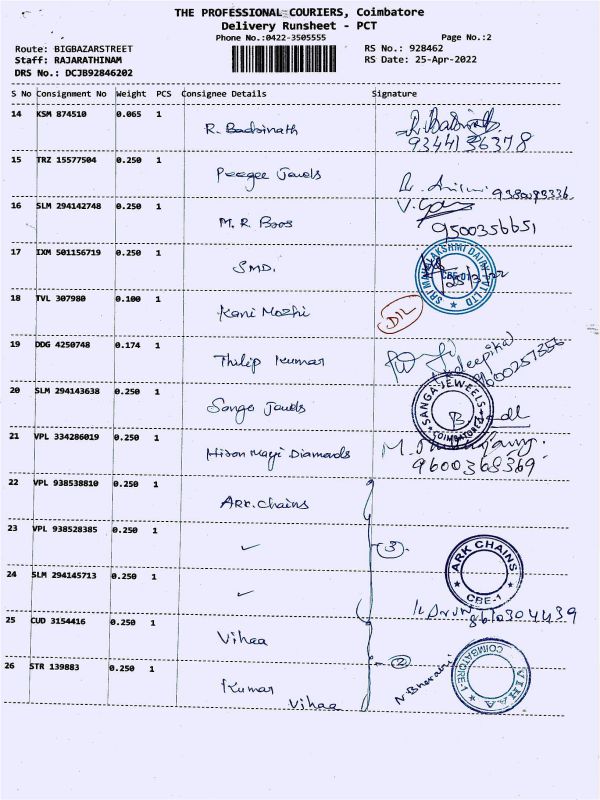 THE PROFESSIONAL COURIERS, Coimbatore
Delivery Runsheet - PCT
Phone No.:0422-3505555 Page No.:2
Route: BIGBAZARSTREET RS No.: 928462
Staff: RAJARATHINAM RS Date: 25-Apr-2022
DRS No.: DCJB92846202
S No Consignment No Weight PCS Consignee Details Signature
14 KSM 874510 0.065 1
R. Badrinath
9344136378
15 TRZ 15577504 0.250 1
9380093336
16 SLM 294142748 0.250 1
M. R. Boos
9500356651
17 IXM 501156719 0.250 1
SMD.
SRI MAHALAKSHMI DAIRY PVT LTD
CBE-01
18 TVL 307980 0.100 1
Kani Mozhi
D/L
19 DDG 4250748 0.174 1
Thilip Kumar
deepika
9600257356
20 SLM 294143638 0.250 1
SANGA JEWEELS
COIMBATORE
21 VPL 334286019 0.250 1
Diamonds
9600368369
22 VPL 938538810 0.250 1
ARK. Chains
23 VPL 938528385 0.250 1
✓ (3)
ARK CHAINS
CBE-1
24 SLM 294145713 0.250 1
✓
8610304439
25 CUD 3154416 0.250 1
Vihaa
26 STR 139883 0.250 1
(2)
N. Bharathi
COIMBATORE-1
VIHAA
Kumar
Vihaa